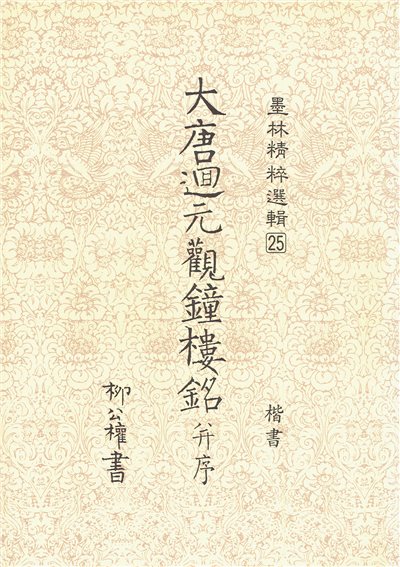 墨林精粹選輯25
楷書
大唐迴元觀鐘樓銘并序
柳公權書